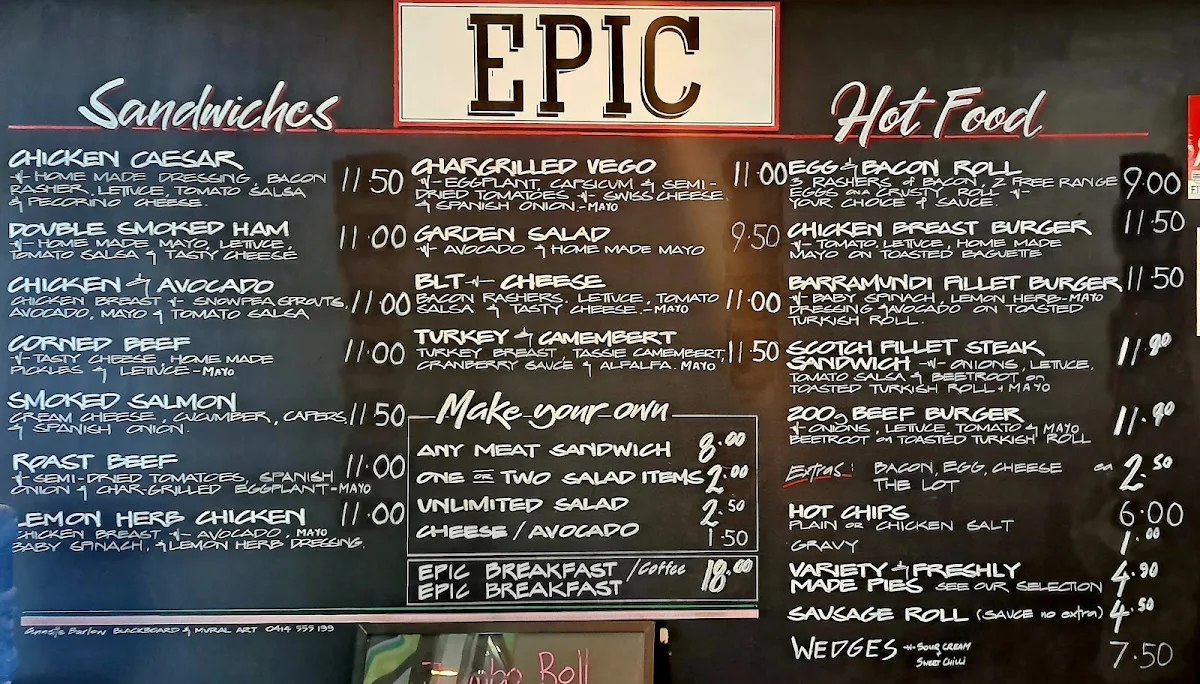 EPIC
Sandwiches
CHICKEN CAESAR 11.50
w- HOME MADE DRESSING, BACON
RASHER, LETTUCE, TOMATO SALSA
& PECORINO CHEESE.
DOUBLE SMOKED HAM 11.00
w- HOME MADE MAYO, LETTUCE,
TOMATO SALSA & TASTY CHEESE
CHICKEN & AVOCADO 11.00
CHICKEN BREAST w- SNOWPEA SPROUTS,
AVOCADO, MAYO & TOMATO SALSA
CORNED BEEF 11.00
w- TASTY CHEESE, HOME MADE
PICKLES & LETTUCE - MAYO
SMOKED SALMON 11.50
CREAM CHEESE, CUCUMBER, CAPERS,
& SPANISH ONION.
ROAST BEEF 11.00
w- SEMI-DRIED TOMATOES, SPANISH
ONION & CHAR-GRILLED EGGPLANT - MAYO
LEMON HERB CHICKEN 11.00
CHICKEN BREAST w- AVOCADO, MAYO
BABY SPINACH, & LEMON HERB DRESSING.
Annette Barlow BLACKBOARD & MURAL ART 0414 555 199
CHARGRILLED VEGO 11.00
w- EGGPLANT, CAPSICUM & SEMI-
DRIED TOMATOES w- SWISS CHEESE
& SPANISH ONION. - MAYO
GARDEN SALAD 9.50
w- AVOCADO & HOME MADE MAYO
BLT w- CHEESE 11.00
BACON RASHERS, LETTUCE, TOMATO
SALSA & TASTY CHEESE. - MAYO
TURKEY & CAMEMBERT 11.50
TURKEY BREAST, TASSIE CAMEMBERT,
CRANBERRY SAUCE & ALFALFA. MAYO
Make your own
ANY MEAT SANDWICH 8.00
ONE OR TWO SALAD ITEMS 2.00
UNLIMITED SALAD 2.50
CHEESE / AVOCADO 1.50
EPIC BREAKFAST / Coffee 18.00
EPIC BREAKFAST
Roll
Hot Food
EGG & BACON ROLL 9.00
3 RASHERS of BACON, 2 FREE RANGE
EGGS on a CRUSTY ROLL w-
YOUR CHOICE of SAUCE.
CHICKEN BREAST BURGER 11.50
w- TOMATO, LETTUCE, HOME MADE
MAYO ON TOASTED BAGUETTE
BARRAMUNDI FILLET BURGER 11.50
w- BABY SPINACH, LEMON HERB-MAYO
DRESSING & AVOCADO ON TOASTED
TURKISH ROLL.
SCOTCH FILLET STEAK 11.90
SANDWICH -w- ONIONS, LETTUCE,
TOMATO SALSA & BEETROOT on
TOASTED TURKISH ROLL + MAYO
200g BEEF BURGER 11.90
w- ONIONS, LETTUCE, TOMATO & MAYO
BEETROOT on TOASTED TURKISH ROLL
Extras: BACON, EGG, CHEESE ea 2.50
THE LOT
HOT CHIPS 6.00
PLAIN OR CHICKEN SALT
GRAVY 1.00
VARIETY of FRESHLY 4.90
MADE PIES SEE OUR SELECTION
SAUSAGE ROLL (SAUCE no extra) 4.50
WEDGES -w- SOUR CREAM 7.50
+
SWEET CHILLI